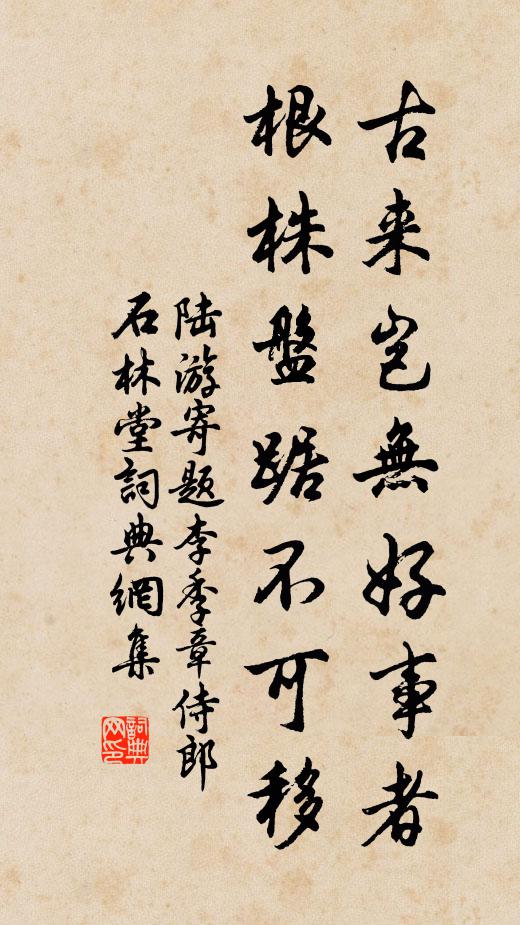 古来岂無好事者
根株盤踞不可移
陆游寄题李季章侍郎
石林堂詞典網集
詞典
网印